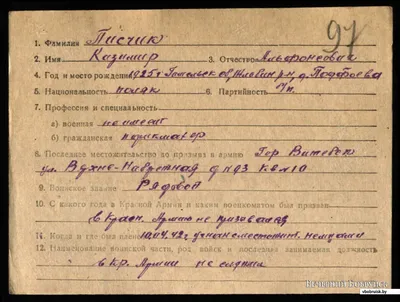 97
1. Фамилия Писчик
2. Имя Казимир 3. Отчество Альфонсович
4. Год и место рождения 1925 г. Гомельск. обл, Жлобин р-н, д.
5. Национальность поляк 6. Партийность б/п.
7. Профессия и специальность
а) военная не имеет
б) гражданская парикмахер
8. Последнее местожительство до призыва в армию Гор Витебск
ул. д кв 10
9. Воинское звание Рядовой
10. С какого года в Красной Армии и каким военкоматом был призван
в Красн. Армию не призывался
11. Когда и где был пленен 10/IV.42г. немцами
12. Название воинской части, род войск и последняя занимаемая должность
в Кр. Армии не служил
vbobruisk.by